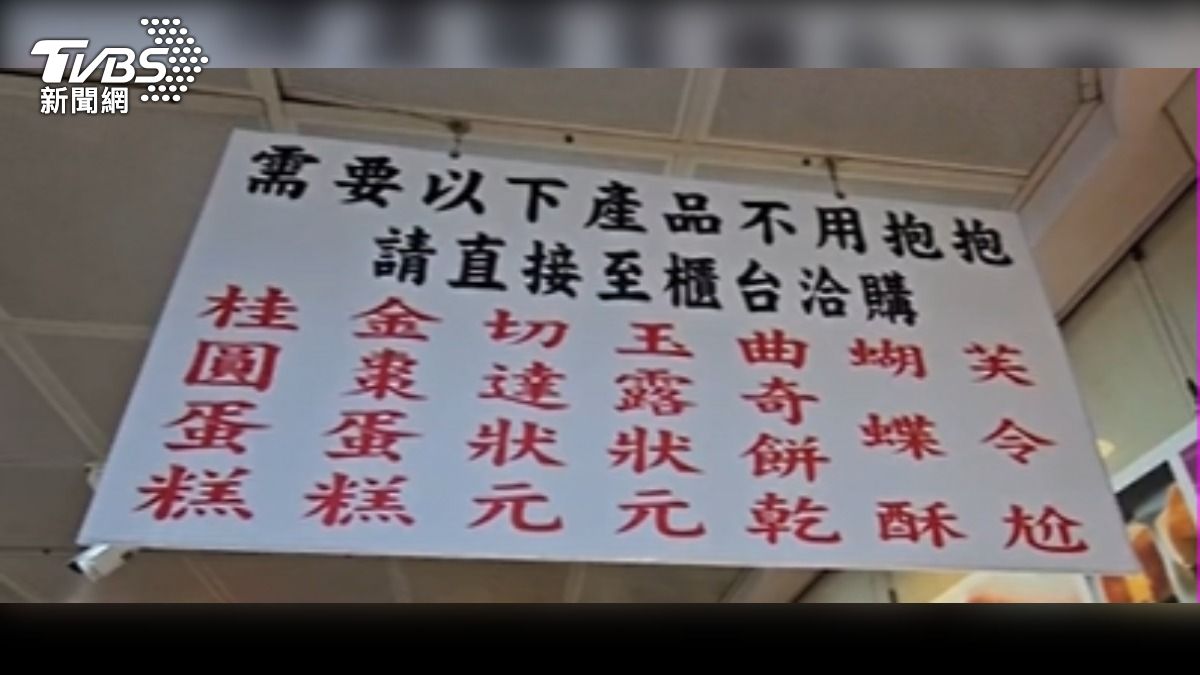 TVBS
新聞網
需要以下產品不用抱抱
請直接至櫃台洽購
芙令尬
蝴蝶酥
曲奇餅乾
玉露狀元
切達狀元
金棗蛋糕
桂圓蛋糕